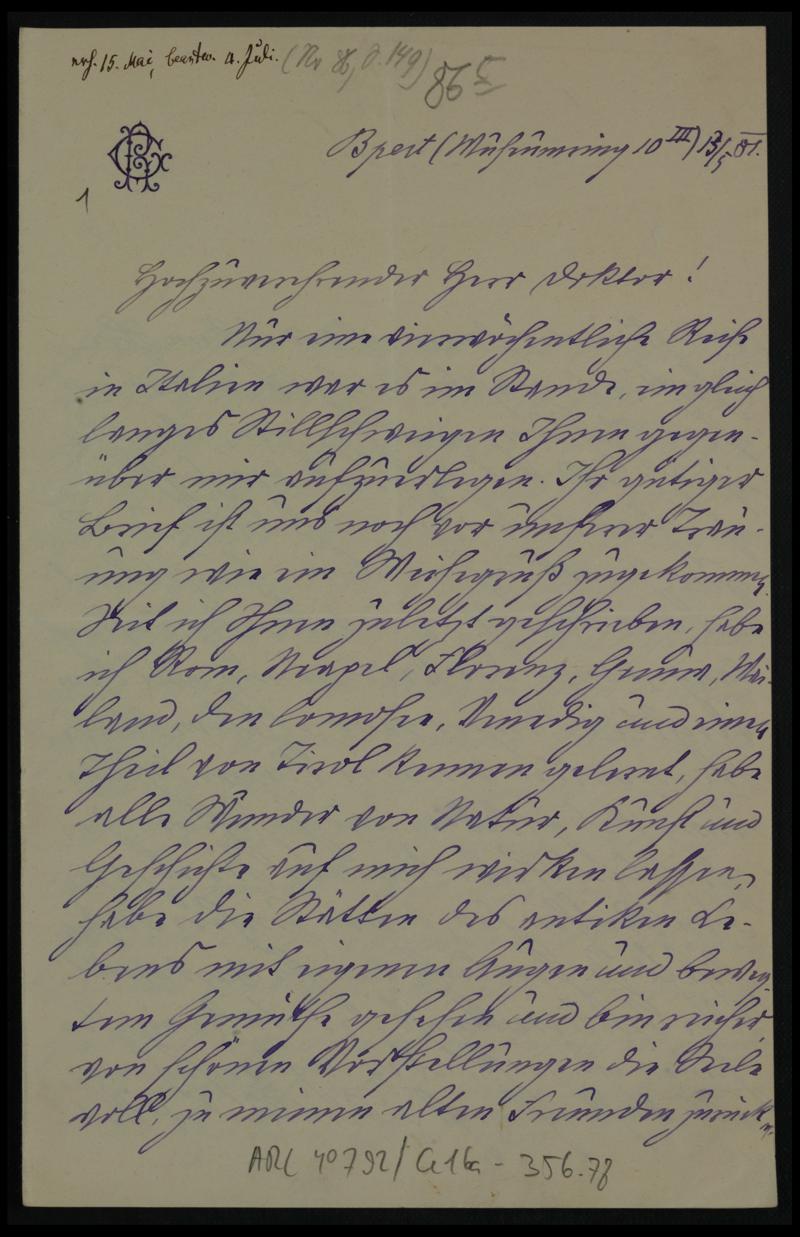 erh. 15. Mai, beantw. 4. Juli. (Nr 86, S. 149)
86
1
Bpest (Museumring 10 III) 13/5 81.
Hochzuverehrender Herr Doktor!
Nur eine vierwöchentliche Reise
in Italien war es im Stande, ein gleich
langes Stillschweigen Ihnen gegen-
über mir aufzuerlegen. Ihr gütiger
Brief ist uns noch vor unserer Trau-
ung wie ein Weihegruß zugekommen.
Seit ich Ihnen zuletzt geschrieben, habe
ich Rom, Neapel, Florenz, Genua, Mai-
land, den Comosee, Venedig und einen
Theil von Tirol kennen gelernt, habe
alle Wunder von Natur, Kunst und
Geschichte auf mich wirken lassen,
habe die Stätten des antiken Le-
bens mit eigenen Augen und beweg-
tem Gemüthe gesehen und bin reicher,
von schönen Vorstellungen die Seele
voll, zu meinen alten Freunden zurück
ARC 4° 792/ G16a - 356.78